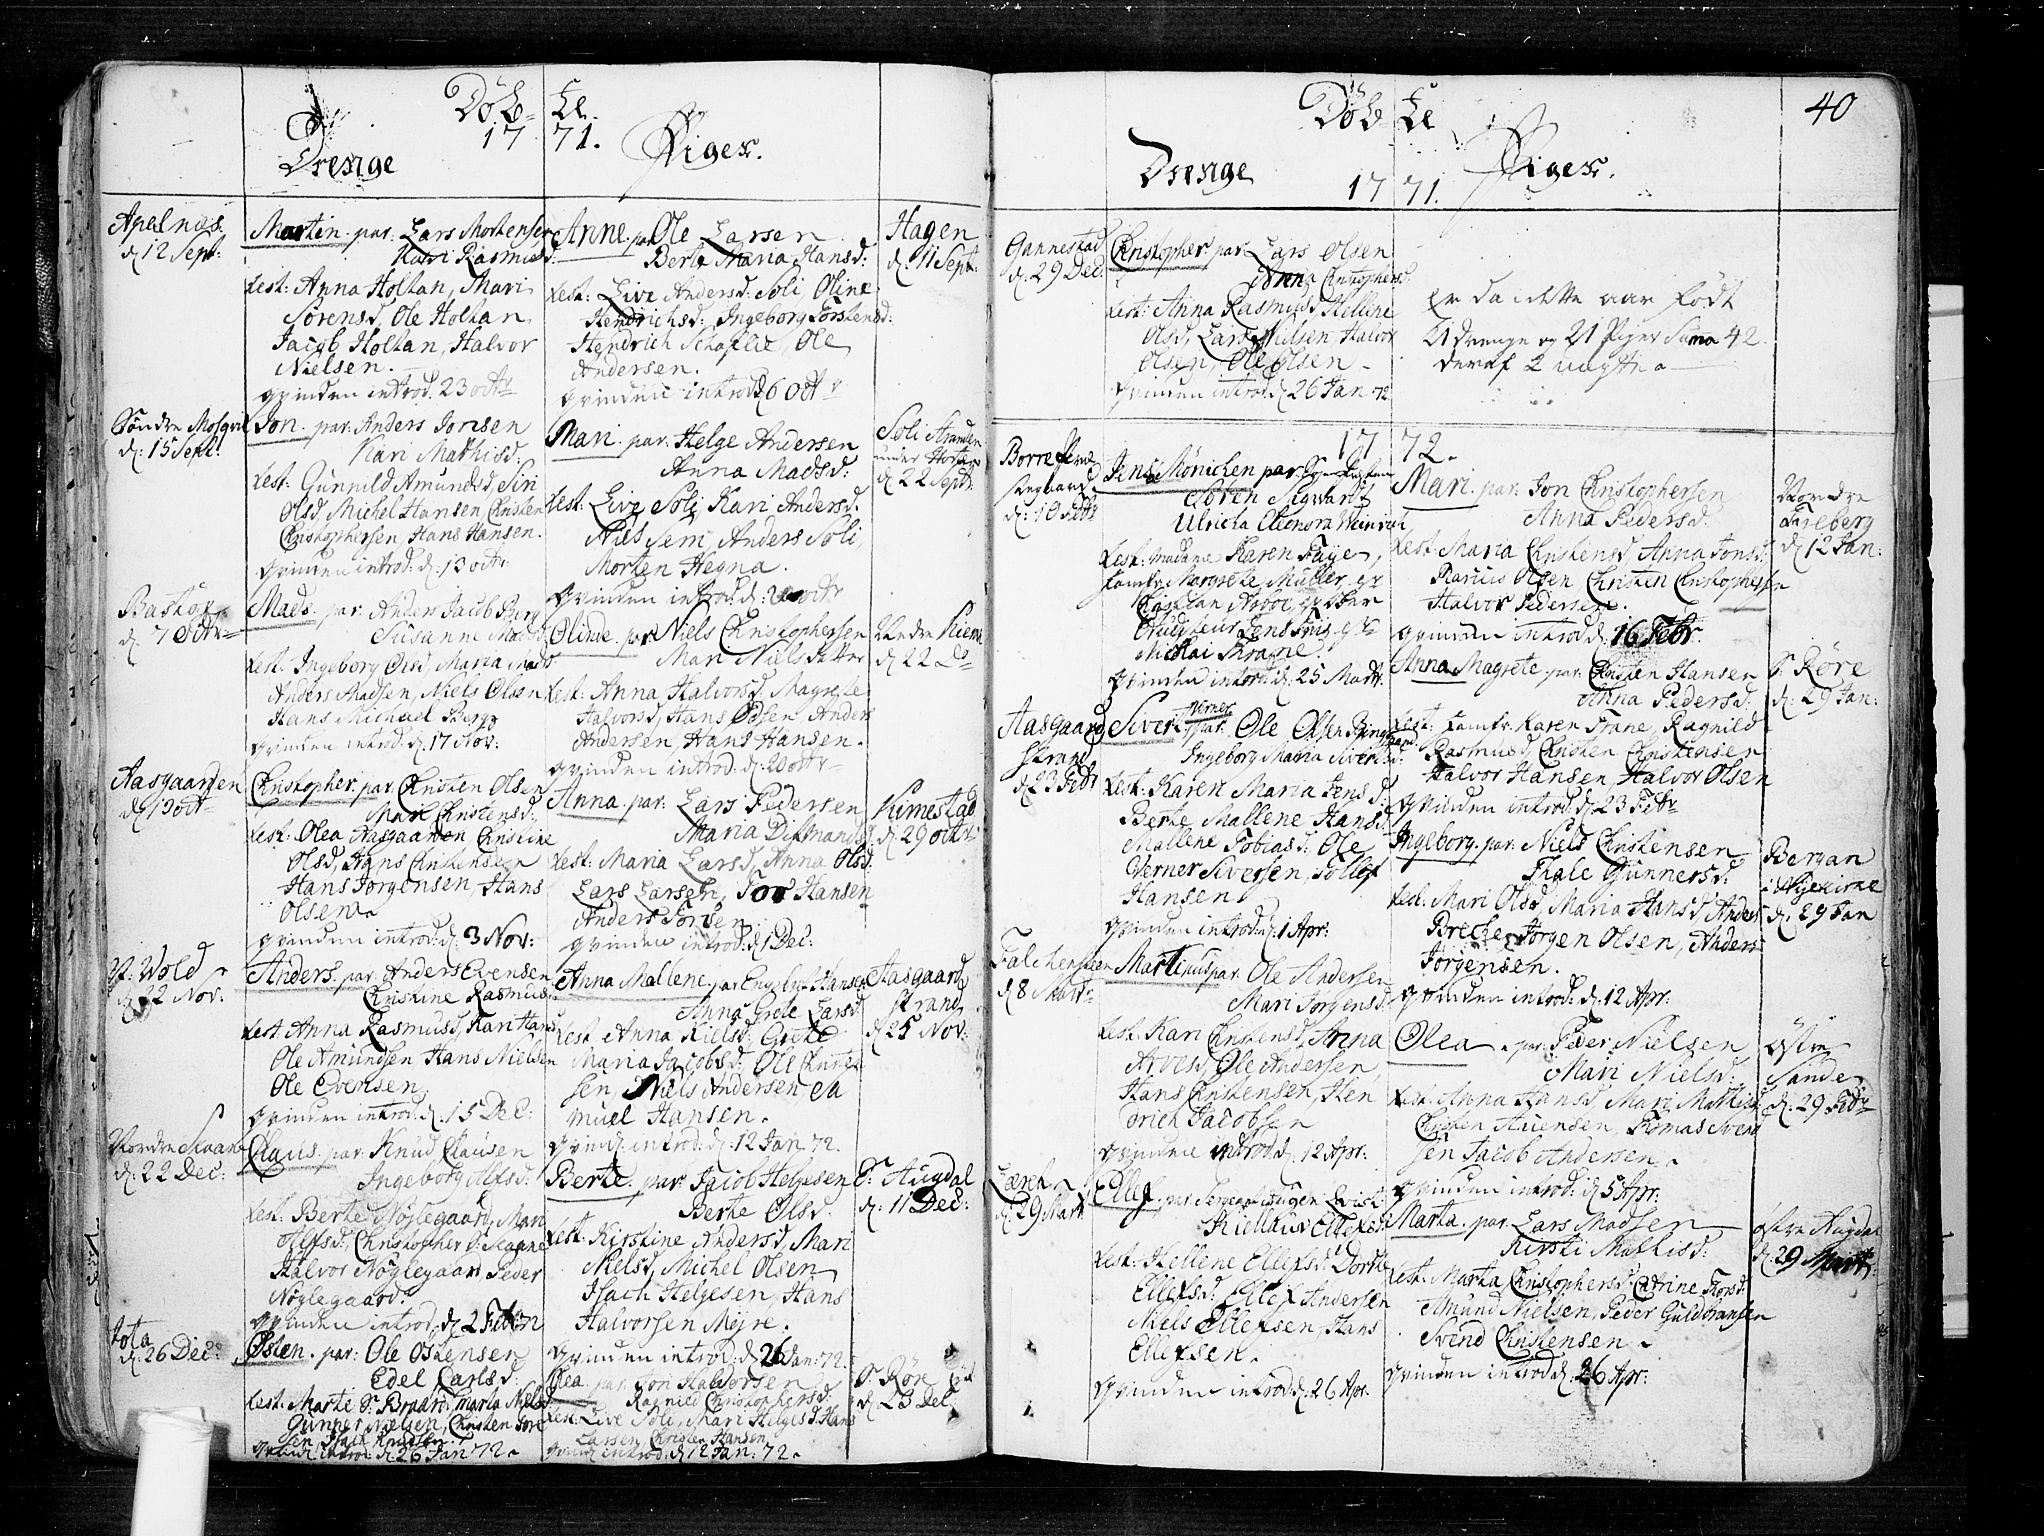 Døb- te
17 71.
Drenge
Piger.
Apelnæs
d: 12 Sept:
Martin. par: Lars Mortensen
Kari Rasmusd:
test: Anna Holtan, Mari
Sørensd, Ole Holtan
Jacob Holtan, Halvor
Nielsen.
qvinden introd. 23 octr
Søndre
d: 15 Sept:
Jon. par: Anders Jonsen
Kari Mathisd:
test: Gunnild Amundsd, Siri
Olsd, Michel Hansen Christen
Christophersen, Hans Hansen.
qvinden introd: d: 13 octr:
d: 7 octr
Mads. par: Anders Jacob Berg
Susanne
test: Ingeborg Olsd, Maria Mads
Anders Madsen, Niels Olsen
Hans Michael Berg
qvinden introd: d: 17 Nov:
Aasgaarden
d: 13 octr
Christopher. par: Christen Olsen
Mari Christensd:
test: Olea Aasgaarden Christine
Olsd, Hans Christensen
Hans Jorgensen, Hans
Olsen
qvinden introd: d: 3 Nov:
N: Wold
d: 22 Nov:
Anders. par: Anders Evensen
Christine Rasmusd:
test: Anna Rasmusd, Kari Hans
Ole Amundsen Hans Nielsen
Ole Evensen
qvinden introd: d: 15 Dec:
Nordre
d: 22 Dec:
Claus. par: Knud Clausen
Ingeborg Olfsd:
test: Berte Nøglegaard, Mari
Olfsd, Christopher
Halvor Nøglegaard, Peder
Nøglegaard.
qvinden introd: d: 2 Febr 72
d: 26 Dec:
Østen. par: Ole Ostensen
Edel Carlsd:
test: Marte Marta Niels
Gunner Nielsen, Christen Sore
sen Isach Knudsen.
qvind: introd: d: 26 Jan 72.
Anne. par Ole Larsen
Berte Maria Hansd:
test: Live Andersd: Soli, Oline
Hendrichsd: Ingeborg Torstensd:
Hendrich Ole
Andersen.
qvinden introd: d 6 octr
Hagen
d: 11 Sept:
Mari. par: Helge Andersen
Anna Madsd:
test: Live Soli Kari Andersd.
Niels Sem, Anders Soli,
Morten Hegna.
qvinden introd: d: octr
Soli Stranden
under
d: 22 Sept:
Olinde. par: Niels Christophersen
Mari Nielsdatter
test: Anna Halvorsd, Magrete
Halvorsd, Hans Odsen, Anders
Andersen, Hans Hansen.
qvinden introd: d: 20 octr
Nedre
d: 22 do
Anna. par: Lars Pedersen
Maria Dittmansd:
test: Maria Larsd, Anna Olsd
Lars Larsen, Tor Hansen
Anders Torsen
qvinden introd: d 1 Dec:
Kimestad
d: 29 octr:
Anna Mallene. par Engelbret Hansen
Anna Grete Larsd
test Anna Nielsd: Grete
Maria Jacobsd: Ole Christen
sen, Niels Andersen Sa
muel Hansen.
qvind: introd: d: 12 Jan 72.
Aasgaard
strand
d: 25 Nov:
Berte. par Jacob Helgesen
Berte Olsd.
test: Kirstine Andersd, Mari
Nielsd, Michel Olsen
Isach Helgesen, Hans
Halvorsen Mejre.
qvinden introd: d 26 Jan: 72
S: Augdal
d: 11 Dec:
Olea. par Jon Halvorsen
Ragnild Christophersd:
test: Live Soli, Mari Helgesd. Hans
Larsen Christen Hansen
qvind: introd: d 12 Jan: 72.
S: Røre
d: 23 Dec:
Døb- te
40
Drenge
17 71.
Piger.
Gannestad
d: 29 Dec:
Christopher. par: Lars Olsen
Anna Christophersd
test: Anna Rasmusd, Hellene
Olsd, Lars Nielsen, Halvor
Olsen, Ole Olsen.
qvinden introd: d: 26 Jan 72
er da dette aar födt
21 drenge og 21 Piger Suma 42
deraf 2 uægte.
17 72.
Borre
d: 10 Febr
Jens Mönichen par:
Soren
Ulricha Eleonora
test: Madame Karen Faye,
Jomfr. Margrete Müller,
Christian
Jens Friis
Nicolai
qvinden introd: d: 25 Mart:
Mari. par: Jon Christophersen
Anna Pedersd.
test: Maria Christensd Anna Jonsd:
Rasmus Olsen Christen Christophersen
Halvor Pedersen.
qvinden introd: d: 16 Febr.
Nordre
d: 12 Jan:
Anna Magrete par: Christen Hansen
Anna Pedersd:
test: Jomfr. Karen Trane, Ragnild
Rasmusd, Christen Christensen
Halvor Hansen, Halvor Olsen
qvinden introd: d: 23 Febr
S: Røre
d: 29 Jan:
Aasgaard
strand
d: 23 Febr
Siver Verner par: Ole Olsen
Ingeborg Maria Siversd:
test: Karen Maria Jensd:
Berte Mallene Hansd:
Mallene Tobiasd: Ole
Verner Siversen, Tollef
Hansen.
qvinden introd: d: 1 Apr:
Ingeborg. par: Niels Christensen
Gunnersd:
test: Mari Olsd, Maria Hansd, Anders
Brecke, Jorgen Olsen, Anders
Jorgensen.
qvinden introd: d: 12 Apr:
Bergan
d: 29 Jan
Falchensteen
d 8 Mart
Martinus par: Ole Andersen
Mari Jorgensd:
test: Kari Christensd, Anna
Arvesd, Ole Andersen
Hans Christensen, Hen
drich Jacobsen
qvinden introd: d: 12 Apr:
Olea. par: Peder Nielsen
Mari Nielsd:
test: Anna Hansd, Mari Mathisd
Christen Tomas Svend
sen Jacob Andersen.
qvinden introd: d: 5 Apr:
Østre
Sande
d: 29 Febr
d: 29 Mart
Ellef. par
test: Hellene Ellefsd: Dorthe
Ellefsd: Ellef Andersen
Niels Ellefsen, Hans
Ellefsen.
qvinden introd: d: 26 Apr.
Marta. par: Lars Madsen
Kirsti Mathisd:
test: Marta Christophersd: Catrine Torsd:
Amund Nielsen, Peder Guldbransen
Svend Christensen.
qvinden introd: d: 26 Apr:
østre Augdal
d: 29 Mart: